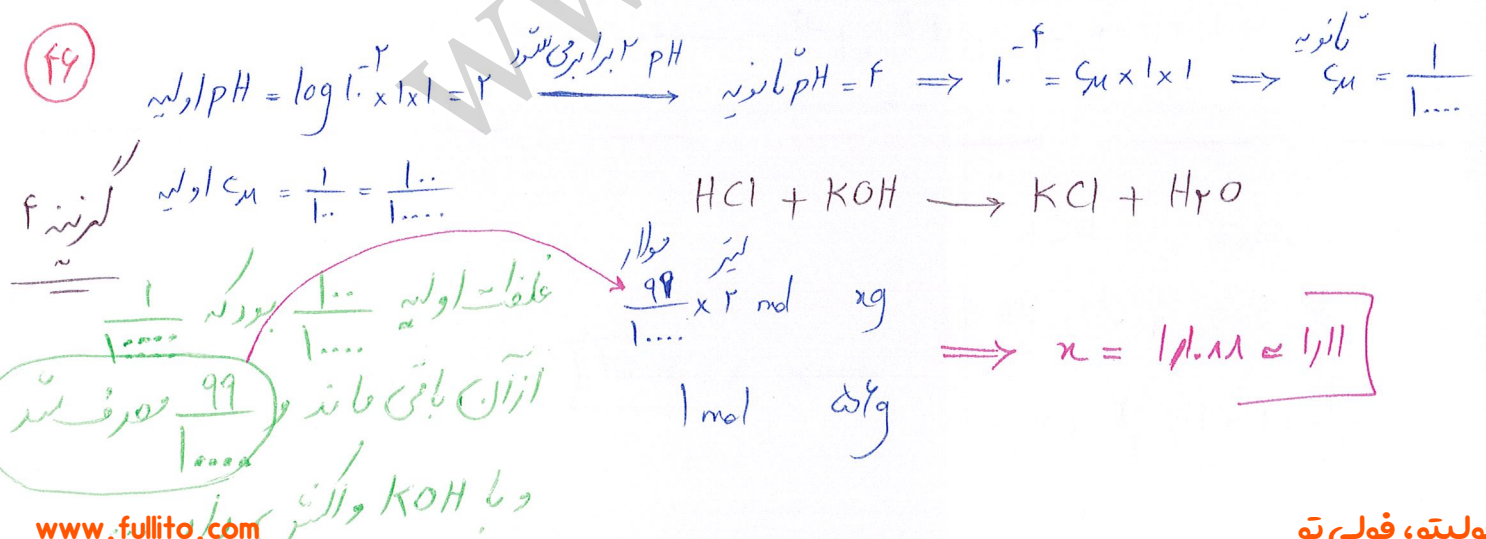 ۴۶
اولیه pH = log ۱۰^-۲ × ۱ × ۱ = ۲ → pH ۲ برابر می‌شود ثانویه pH = ۴ ⇒ ۱۰^-۴ = CM × ۱ × ۱ ⇒ ثانویه CM = ۱/۱۰۰۰۰
اولیه CM = ۱/۱۰۰ = ۱۰۰/۱۰۰۰۰
HCl + KOH → KCl + H۲O
گزینه ۴
غلظت اولیه ۱۰۰/۱۰۰۰۰ بود که ۱/۱۰۰۰۰
از آن باقی ماند و ۹۹/۱۰۰۰۰ مصرف شد
و با KOH
مولار لیتر
۹۹/۱۰۰۰۰ × ۲ mol xg
۱ mol ۵۶g
⇒ x = ۱/۱۰۸۸ ≃ ۱/۱۱
www.fullito.com
ولیتو، فولی تو